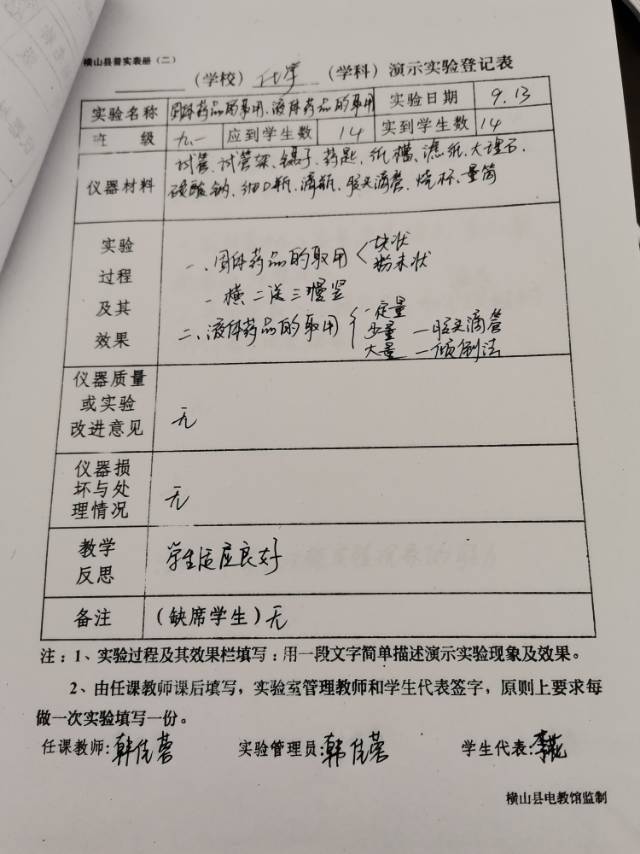 横山县普实表册（二）
（学校）化学（学科）演示实验登记表
实验名称 固体药品的取用、液体药品的取用 实验日期 9.13
班级 九一 应到学生数 14 实到学生数 14
仪器材料 试管、试管架、镊子、药匙、纸槽、滤纸、大理石、
碳酸钠、细口瓶、滴瓶、胶头滴管、烧杯、量筒
实验过程及其效果
一、固体药品的取用 块状
粉末状
一横二送三慢竖
二、液体药品的取用 一定量
少量—胶头滴管
大量—倾倒法
仪器质量或实验改进意见 无
仪器损坏与处理情况 无
教学反思 学生适应良好
备注 （缺席学生）无
注：1、实验过程及其效果栏填写：用一段文字简单描述演示实验现象及效果。
2、由任课教师课后填写，实验室管理教师和学生代表签字，原则上要求每
做一次实验填写一份。
任课教师：韩佳蓉 实验管理员：韩佳蓉 学生代表：
横山县电教馆监制